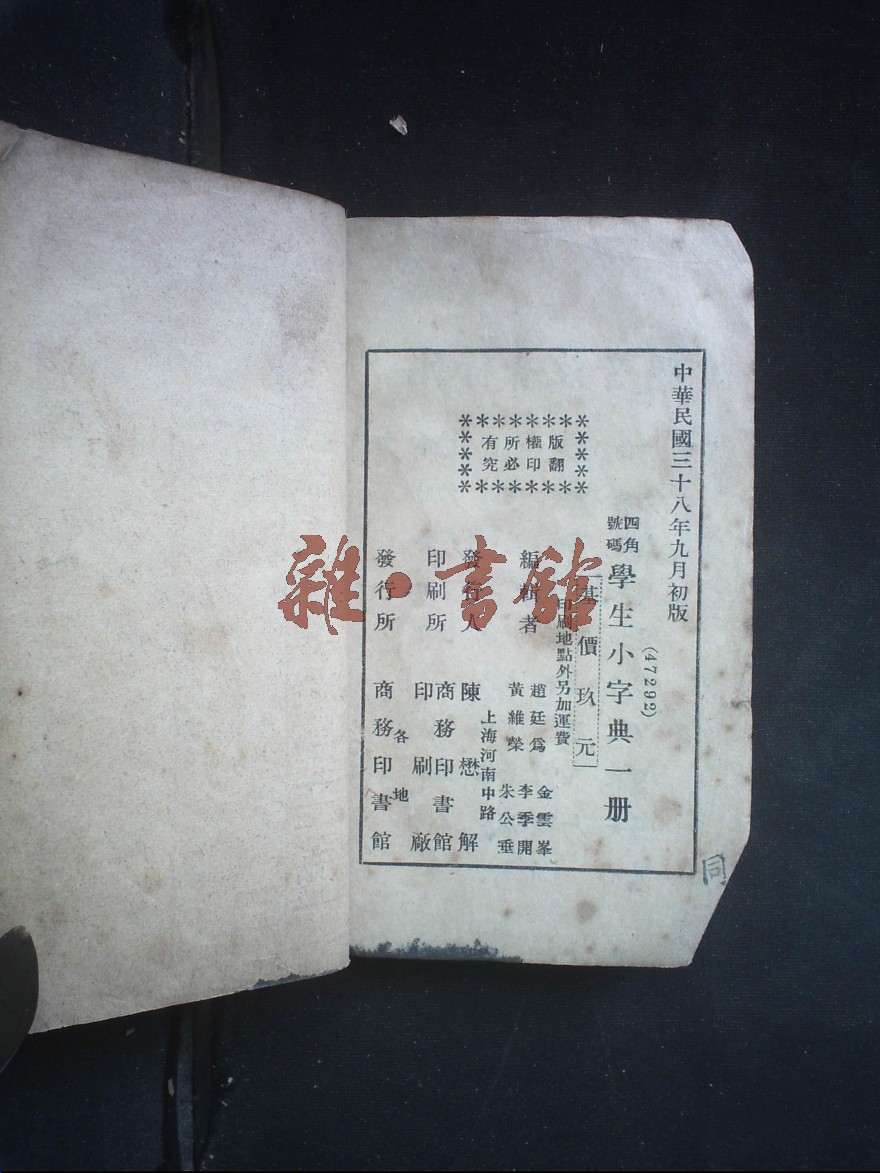 中華民國三十八年九月初版
(47292)
四角號碼學生小字典一册
基價玖元
印刷地點外另加運費
版權所有
翻印必究
編輯者
趙廷爲
黃維榮
金雲峯
李季開
朱公垂
發行人
陳懋解
上海河南中路
印刷所
商務印書館
印刷廠
發行所
各地
商務印書館
同
雜·書館